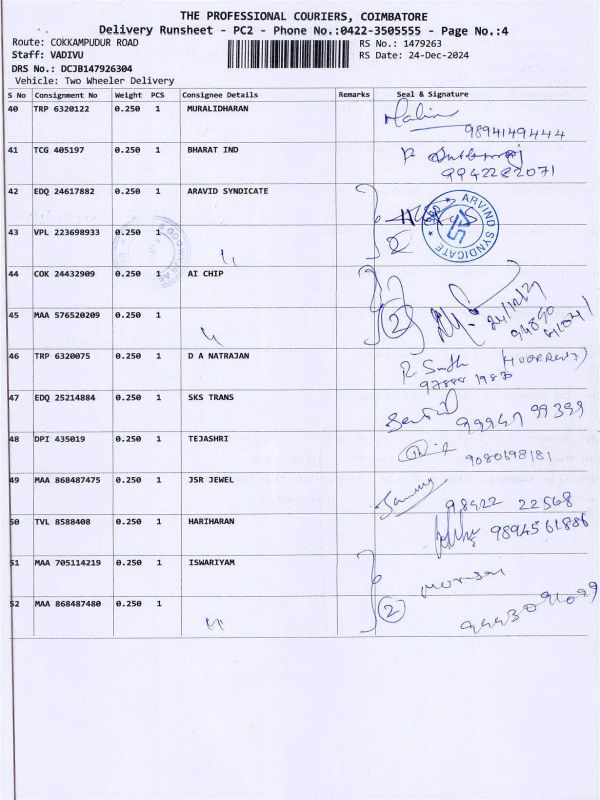 THE PROFESSIONAL COURIERS, COIMBATORE
Delivery Runsheet - PC2 - Phone No.:0422-3505555 - Page No.:4
Route: COKKAMPUDUR ROAD RS No.: 1479263
Staff: VADIVU RS Date: 24-Dec-2024
DRS No.: DCJB147926304
Vehicle: Two Wheeler Delivery
S No Consignment No Weight PCS Consignee Details Remarks Seal & Signature
40 TRP 6320122 0.250 1 MURALIDHARAN
9894149444
41 TCG 405197 0.250 1 BHARAT IND
9942282071
42 EDQ 24617882 0.250 1 ARAVID SYNDICATE
ARVIND SYNDICATE
43 VPL 223698933 0.250 1 "
2
44 COK 24432909 0.250 1 AI CHIP
24/12/24
45 MAA 576520209 0.250 1 "
2
46 TRP 6320075 0.250 1 D A NATRAJAN
47 EDQ 25214884 0.250 1 SKS TRANS
99947 99399
48 DPI 435019 0.250 1 TEJASHRI
9080698181
49 MAA 868487475 0.250 1 JSR JEWEL
98422 22568
50 TVL 8588408 0.250 1 HARIHARAN
9894561886
51 MAA 705114219 0.250 1 ISWARIYAM
52 MAA 868487480 0.250 1 "
2